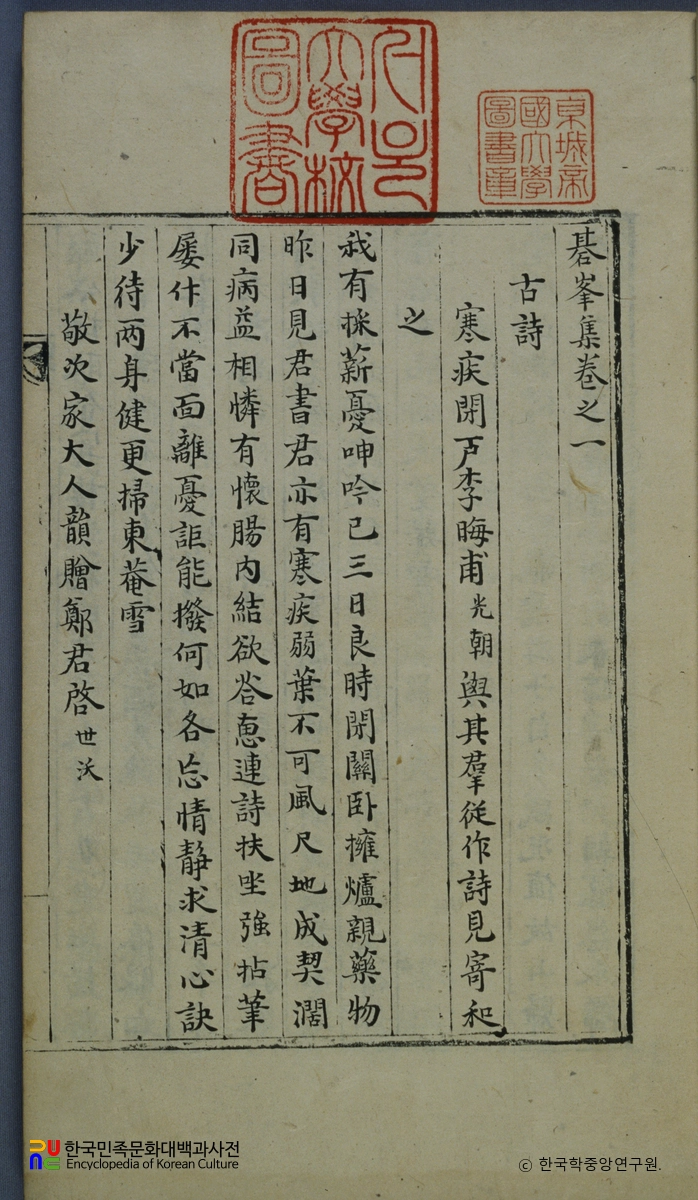 서울
大學校
圖書
京城帝
國大學
圖書章
碁峯集卷之一
古詩
寒疾閉戸李晦甫光朝與其羣從作詩見寄和
之
我有採薪憂呻吟已三日良時閉關卧擁爐親藥物
昨日見君書君亦有寒疾弱葉不可風尺地成契濶
同病益相憐有懷腸内結欲答惠連詩扶坐強拈筆
屡什不當面離憂詎能撥何如各忘情静求清心訣
少待两身健更掃東菴雪
敬次家大人韻贈鄭君啓世沃
한국민족문화대백과사전
Encyclopedia of Korean Culture
© 한국학중앙연구원.